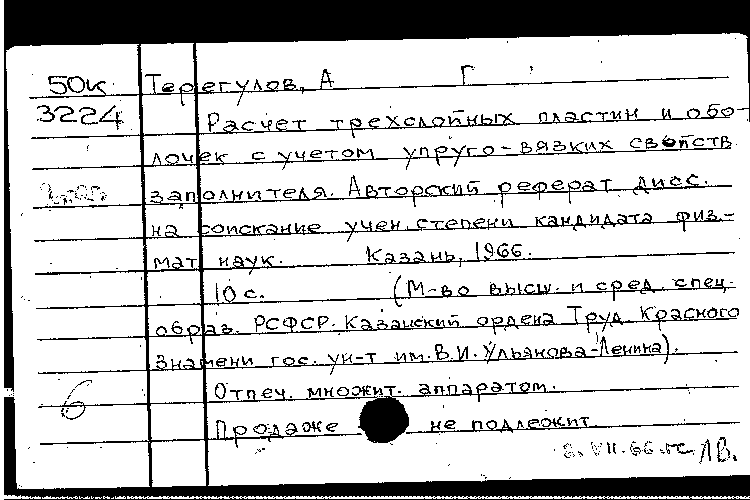 50к Терегулов, А Г
3224 Расчет трехслойных пластин и обо-
лочек с учетом упруго-вязких свойств
заполнителя. Авторский реферат дисс.
на соискание учен. степени кандидата физ.-
мат. наук. Казань, 1966.
10 с. (М-во высш. и сред. спец.
образ. РСФСР. Казанский ордена Труд. Красного
Знамени гос. ун-т им. В.И. Ульянова-Ленина).
Отпеч. множит. аппаратом.
б Продаже не подлежит.
VII.66 ЛВ.